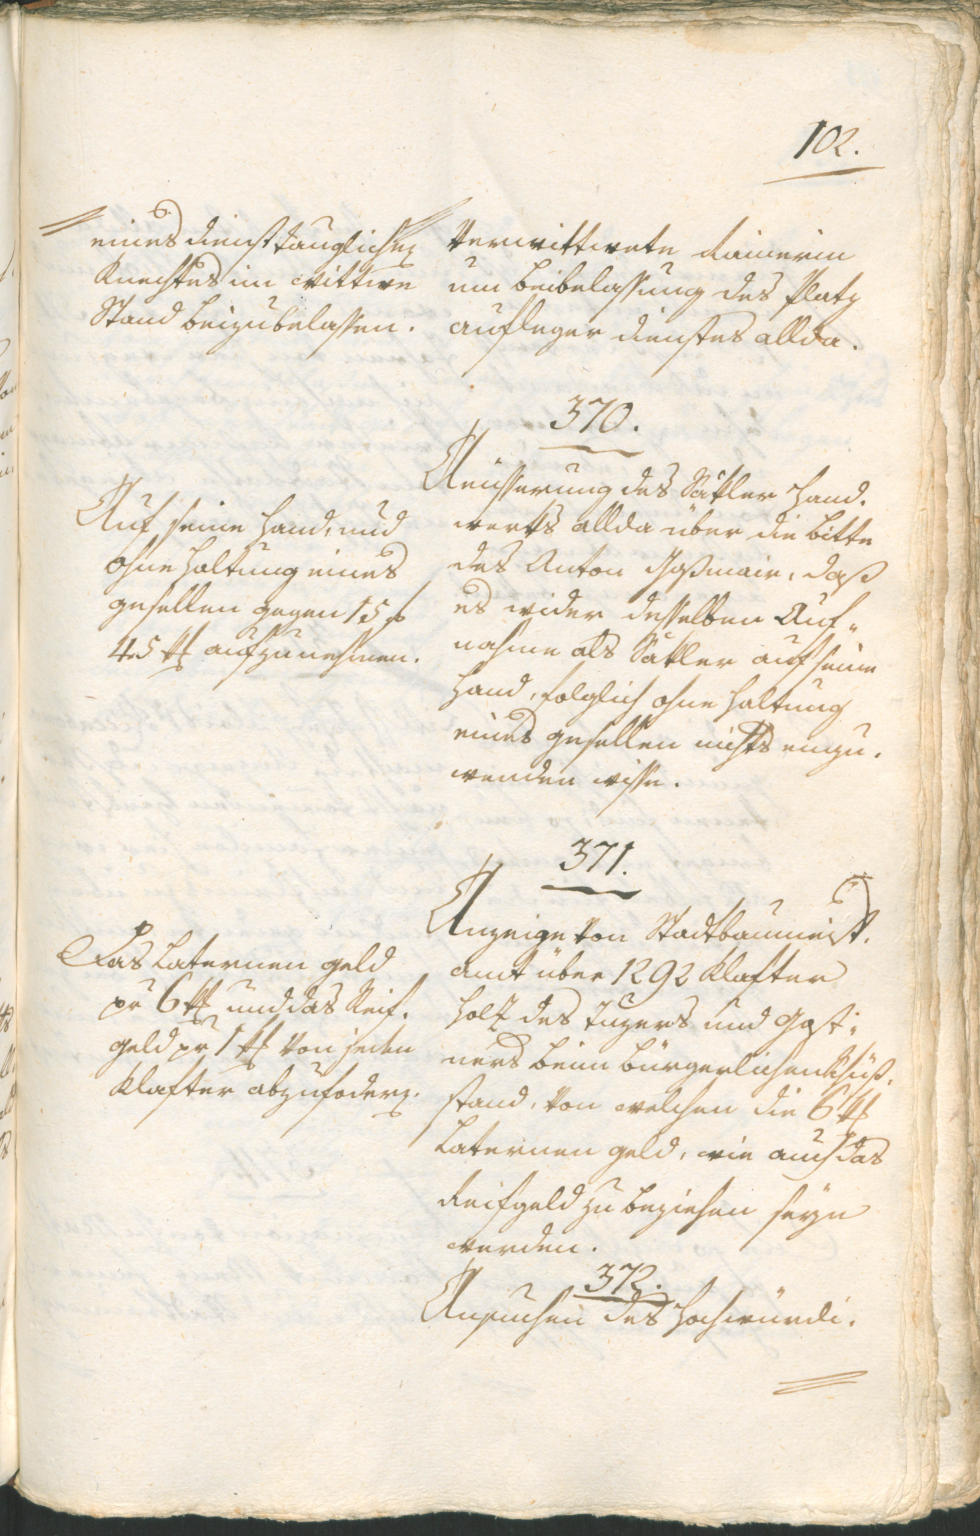 102.
eines diensttauglichen
Knechtes im Wittwe
Stand beizubelassen.
Verwittwete Rainerin
um Beibelassung des Platz
auflegerdienstes allda.
370.
Auf seine Hand, und
ohne Haltung eines
Gesellen gegen 15 f
45 xr aufzunehmen.
Aeusserung des Sattler Hand-
werks allda über die Bitte
des Anton , daß
es wider desselben Auf-
nahme als Sattler auf seine
Hand, folglich ohne Haltung
eines Gesellen nichts einzu-
wenden wisse.
371.
Das Laternen geld
pr 6 xr und das Reif-
geld pr 1 xr von jeden
Klafter abzufodern.
Anzeige von Stadtbaumeist-
amt über 1292 Klafter
Holz des und
beim bürgerlichen
stand, von welchen die 6 xr
Laternen geld, wie auch das
Reifgeld zu beziehen seyn
werden.
372.
Ansuchen des Hochwürdi-